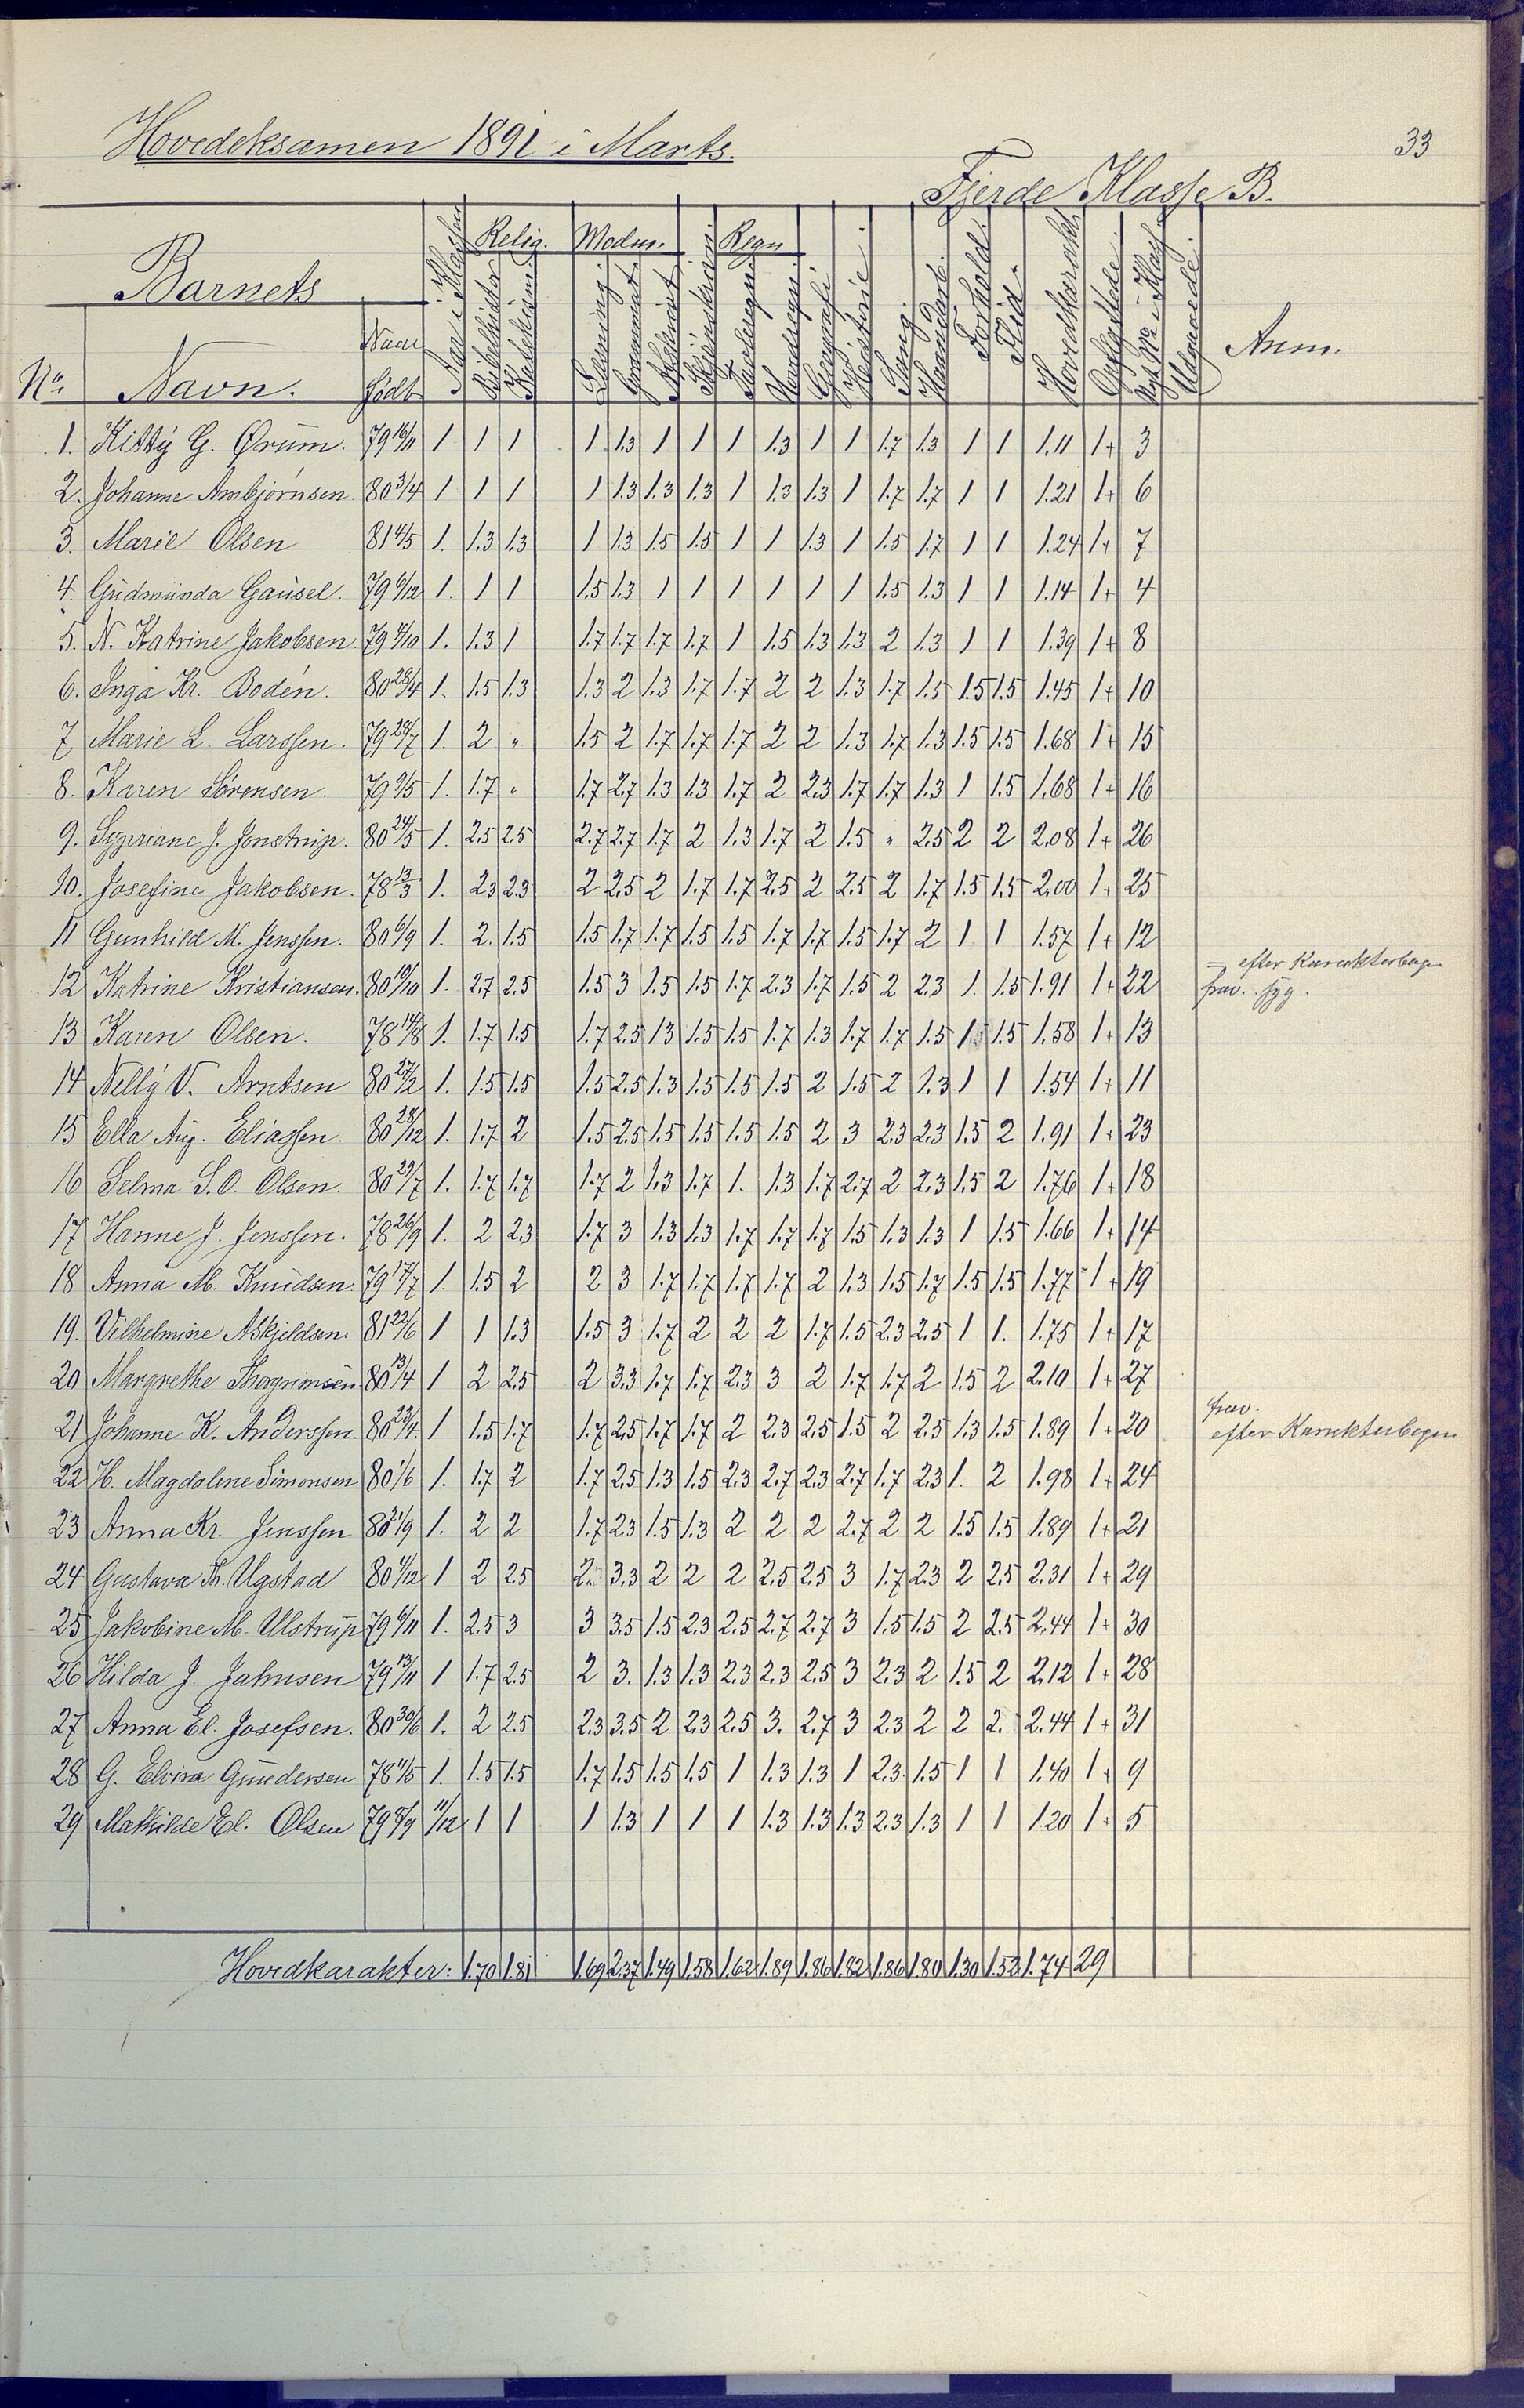 33
Hovedeksamen 1891 i Marts.
Fjerde Klasse B.
Barnets Aar i Klassen Relig. Modm. Regn
No. Navn. Naar født Bibelhistor Læsning Grammat. Skjønskriv Tavleregn Geografi Historie Sang Haandarb. Forhold Flid Hovedkarakt Opflyttede Nyt No. i Klas. Udgaaede Anm.
1. Kitty G. Ørum. 79 16/11 1 1 1 1 1.3 1 1 1 1.3 1 1 1.7 1.3 1 1 1.11 1+ 3
2. Johanne Ambjørnsen. 80 3/4 1 1 1 1 1.3 1.3 1.3 1 1.3 1.3 1 1.7 1.7 1 1 1.21 1+ 6
3. Marie Olsen 81 4/5 1. 1.3 1.3 1 1.3 1.5 1.5 1 1 1.3 1 1.5 1.7 1 1 1.24 1+ 7
4. Gudmunda Gausel. 79 6/12 1. 1 1 1.5 1.3 1 1 1 1 1 1 1.5 1.3 1 1 1.14 1+ 4
5. N. Katrine Jakobsen. 79 4/10 1. 1.3 1 1.7 1.7 1.7 1.7 1 1.5 1.3 1.3 2 1.3 1 1 1.39 1+ 8
6. Inga Kr. Bodén. 80 28/4 1. 1.5 1.3 1.3 2 1.3 1.7 1.7 2 2 1.3 1.7 1.5 1.5 1.5 1.45 1+ 10
7 Marie L. Larssen. 79 28/7 1. 2 " 1.5 2 1.7 1.7 1.7 2 2 1.3 1.7 1.3 1.5 1.5 1.68 1+ 15
8. Karen Sörensen. 79 9/5 1. 1.7 " 1.7 2.7 1.3 1.3 1.7 2 2.3 1.7 1.7 1.3 1 1.5 1.68 1+ 16
9. J. Jonstrup. 80 24/5 1. 2.5 2.5 2.7 2.7 1.7 2 1.3 1.7 2 1.5 " 2.5 2 2 2.08 1+ 26
10. Josefine Jakobsen. 78 13/3 1. 2.3 2.3 2 2.5 2 1.7 1.7 2.5 2 2.5 2 1.7 1.5 1.5 2.00 1+ 25
11 Gunhild M. Jenssen. 80 6/9 1. 2. 1.5 1.5 1.7 1.7 1.5 1.5 1.7 1.7 1.5 1.7 2 1 1 1.57 1+ 12
12 Katrine Kristiansen. 80 10/10 1. 2.7 2.5 1.5 3 1.5 1.5 1.7 2.3 1.7 1.5 2 2.3 1. 1.5 1.91 1+ 22 = efter Karakterbogen
frav. syg.
13 Karen Olsen. 78 14/8 1. 1.7 1.5 1.7 2.5 1.3 1.5 1.5 1.7 1.3 1.7 1.7 1.5 1. 1.5 1.58 1+ 13
14 Nelly V. Arntsen 80 27/2 1. 1.5 1.5 1.5 2.5 1.3 1.5 1.5 1.5 2 1.5 2 1.3 1 1 1.54 1+ 11
15 Ella Aug. Eliassen. 80 28/12 1. 1.7 2 1.5 2.5 1.5 1.5 1.5 1.5 2 3 2.3 2.3 1.5 2 1.91 1+ 23
16 Selma S.O. Olsen. 80 29/7 1. 1.7 1.7 1.7 2 1.3 1.7 1. 1.3 1.7 2.7 2 2.3 1.5 2 1.76 1+ 18
17 Hanne J. Jenssen. 78 26/9 1. 2 2.3 1.7 3 1.3 1.3 1.7 1.7 1.7 1.5 1.3 1.3 1 1.5 1.66 1+ 14
18 Anna M. Knudsen. 79 17/7 1. 1.5 2 2 3 1.7 1.7 1.7 1.7 2 1.3 1.5 1.7 1.5 1.5 1.77 1+ 19
19. Vilhelmine Askjeldsen. 81 22/6 1 1 1.3 1.5 3 1.7 2 2 2 1.7 1.5 2.3 2.5 1 1. 1.75 1+ 17
20 Margrethe Thorgrimsen 80 13/4 1 2 2.5 2 3.3 1.7 1.7 2.3 3 2 1.7 1.7 2 1.5 2 2.10 1+ 27
21 Johanne K. Anderssen. 80 23/4 1 1.5 1.7 1.7 2.5 1.7 1.7 2 2.3 2.5 1.5 2 2.5 1.3 1.5 1.89 1+ 20 frav.
efter Karakterbogen
22 H. Magdalene Simonsen 80 1/6 1. 1.7 2 1.7 2.5 1.3 1.5 2.3 2.7 2.3 2.7 1.7 2.3 1. 2 1.98 1+ 24
23 Anna Kr. Jenssen 80 21/9 1. 2 2 1.7 2.3 1.5 1.3 2 2 2 2.7 2 2 1.5 1.5 1.89 1+ 21
24 Gustava Th. Ugstad 80 4/12 1 2 2.5 2. 3.3 2 2 2 2.5 2.5 3 1.7 2.3 2 2.5 2.31 1+ 29
25 Jakobine M. Ulstrup 79 6/11 1. 2.5 3 3 3.5 1.5 2.3 2.5 2.7 2.7 3 1.5 1.5 2 2.5 2.44 1+ 30
26 Hilda J. Jahnsen 79 13/11 1 1.7 2.5 2 3. 1.3 1.3 2.3 2.3 2.5 3 2.3 2 1.5 2 2.12 1+ 28
27 Anna El. Josefsen. 80 30/6 1. 2 2.5 2.3 3.5 2 2.3 2.5 3. 2.7 3 2.3 2 2 2. 2.44 1+ 31
28 G. Elvira Gundersen 78 11/5 1. 1.5 1.5 1.7 1.5 1.5 1.5 1 1.3 1.3 1 2.3. 1.5 1 1 1.40 1+ 9
29 Mathilde El. Olsen 79 5/9 11/12 1 1 1 1.3 1 1 1 1.3 1.3 1.3 2.3 1.3 1 1 1.20 1+ 5
Hovedkarakter: 1.70 1.81 1.69 2.37 1.49 1.58 1.62 1.89 1.86 1.82 1.86 1.80 1.30 1.52 1.74 29